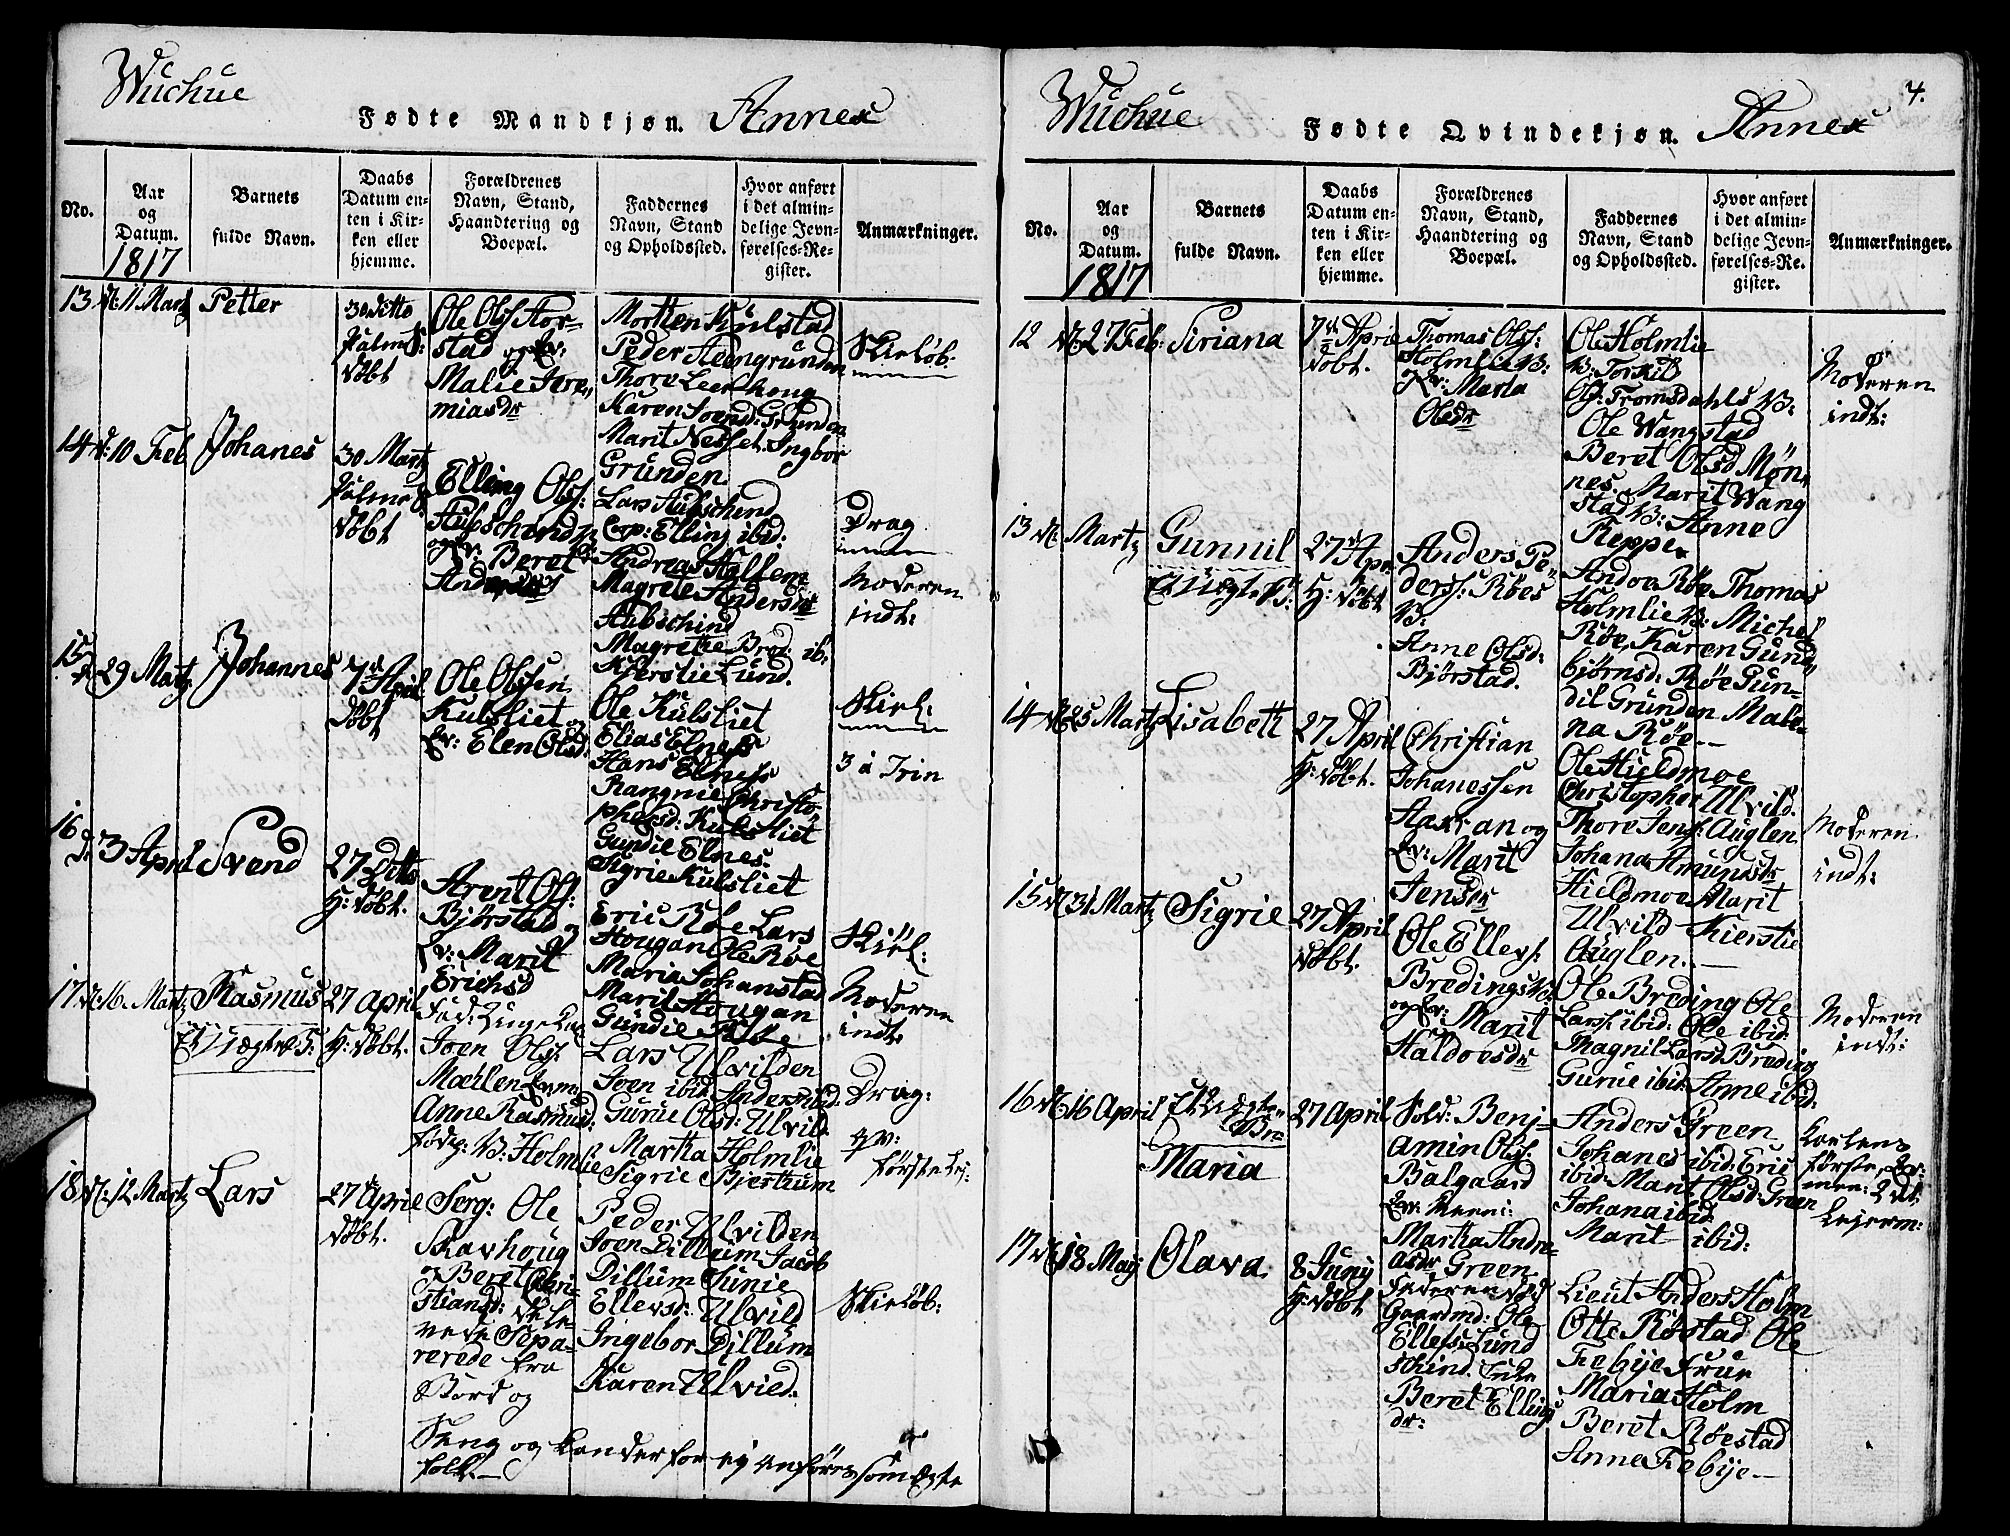 Wuchue
Fødte Mandkjøn. Annex
No.
Aar og Datum.
1817
Barnets fulde Navn.
Daabs Datum enten i Kirken eller hjemme.
Forældrenes Navn, Stand, Haandtering og Boepæl.
Faddernes Navn, Stand og Opholdssted.
Hvor anført i det almindelige Jevnførelses-Register.
Anmærkninger.
13 d: 11 Martz
Petter
30 ditto
Palmes:
døbt
Ole Ols
stad og Ev:
Malie Jere,
miasdr
Morten Külstad
Peder Steengrunden
Thore Leerhoug
Karen Joensd: Gründen
Marit Nesset. Ingbor
Gründen.
Skieløb.
14 d: 10 Feb
Johanes
30 Martz
Palmes
døbt
Elling Ols:
og Ev: Beret
Lars
Corp: Elling ibid:
Andreas Hallem
Magrete Andersdr
Aulschind
Magrethe Bred: ib:
Kjerstie Lund.
Drag
Moderen
indt:
15 d: 29 Martz
Johannes
7d April
døbt
Ole Olssen
Kulsliet og
Ev: Elen Olsd:
Ole Külsliet
Elias Elness
Hans Elness
Rangnie Christo,
phersd: Kulsliet
Gundil Elnes.
Sigrie Kulsliet
Skiel:
3 a Trin
16 d: 3 April
Svend
27 ditto
H: døbt.
Arent Ols:
Bjørstad og
Ev: Marit
Erichsd
Eric Røe Lars
Hougan Ole Røe
Maria Johanstad
Marit Hougan
Gundil Røe
Skiel:
Moderen
indt:
17 d: 16 Martz
Rasmus
Et Uægte S:
27 April
H: døbt.
Joen Ols:
Moelen
Anne Rasmusd:
fødeg: W: Holmlie
Lars Ulvilden
Joen ibid: Anders ibid:
Gurue Olsd: Ulvild
Martha Holmlie
Sigrie Bjertrum
Drag:
qv:
første Lej:
18 d: 12 Martz
Lars
27 April
døbt.
Serg: Ole
Ravhoug
og Beret Chri-
stiansd:
vere Sepa-
rerede fra
Bord og
Seng og kand derfor ej anføres som Ægte
folk.—
Peder Ulvilden
Joen Dillum Jacob
Dillum Sunie
Ellevsd: Ulvild
Ingebor Dillum
Karen Ulvild.
Skieløb:
Wuchue
Fødte Qvindekjøn. Annex
4.
No.
Aar og Datum.
1817
Barnets fulde Navn.
Daabs Datum enten i Kirken eller hjemme.
Forældrenes Navn, Stand, Haandtering og Boepæl.
Faddernes Navn, Stand og Opholdssted.
Hvor anført i det almindelige Jevnførelses-Register.
Anmærkninger.
12 d: 27 Feb:
Siriana
7d April
døbt.
Thomas Ols:
Holmlie W:
og Ev: Marta
Olsdr
Ole Holmlie
W: Torkild
Ols: Tromsdahls W:
Ole Wangstad
Beret Olsd Møn,
nes. Marit Wang
stad W: Anne
Reppe.
Moderen
indt:
13 d: Martz
Gunnil
Et Uægte B:
27d Apr:
H: døbt
Anders Pe-
derss: Røes
W:
Anne Olsd:
Bjørstad.
Andor Røe Thomas
Holmlie W: Michel
Røe, Karen Gund-
bjørnsd: Røe Gun-
dil Grunden Male-
na Røe.—
14 d: 25 Martz
Lisabeth
27 April
H: døbt.
Christian
Johanessen
Haxran og
Ev: Marit
Jensdr
Ole Hieldmoe
Christopher Ulvild.
Thore Jens: Auglen
Johana Amundsdr
Hieldmoe Marit
Ulvild Kierstie
Auglen.—
Moderen
indt:
15 d: 31 Martz
Sigrie
27 April
døbt.
Ole Ellevs:
Bredings W:
og Ev: Marit
Haldoesdr
Ole Breding Ole
Larss: ibid: Ole ibid:
Magnil Larsd Breding
Gurue ibid: Anne ibid:
Moderen
indt:
16 d: 16 April
Et Uægte
Maria
27 April
Sold: Benj-
amin Ols:
Balgaard
Martha Andre-
asdr Green
Anders Green
Johanes ibid: Eric
ibid: Marit Olsd: Green
Johana ibid
Marit ibid:
Karlens
første,
2det
Lejerm:
17 d: 18 Maij
Olava
8 Junij
H: døbt
Faderen død
Gaardmd: Ole
Ellefs: Lund
schind.
Beret Ellings
dr:
Lieut Anders Holm
Otte Røstad Ole
Frebye Frue
Maria Holm
Beret Røestad
Anne Frebye—